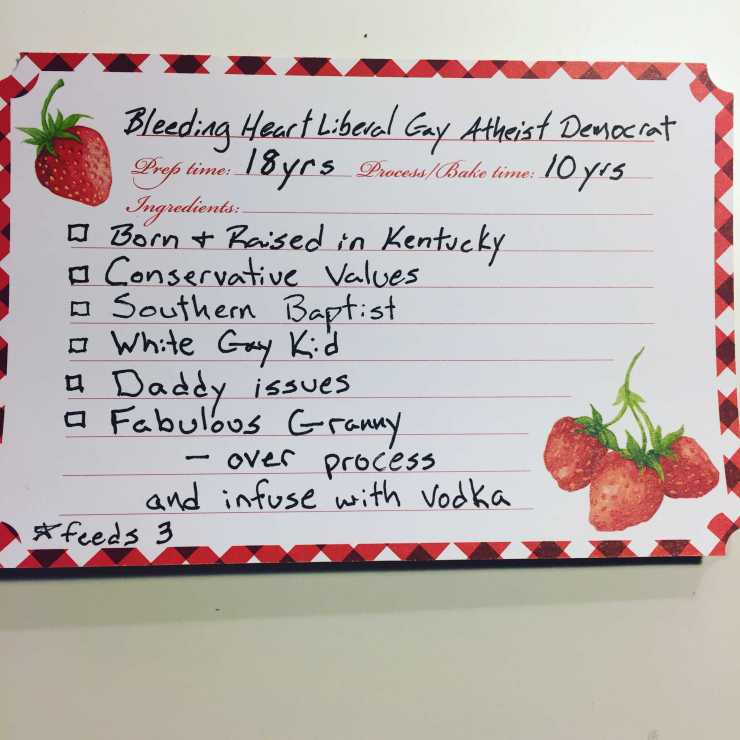 Bleeding Heart Liberal Gay Atheist Democrat
Prep time: 18yrs Process/Bake time: 10yrs
Ingredients:
Born + Raised in Kentucky
Conservative Values
Southern Baptist
White Gay Kid
Daddy issues
Fabulous Granny
- over process
and infuse with vodka
*feeds 3